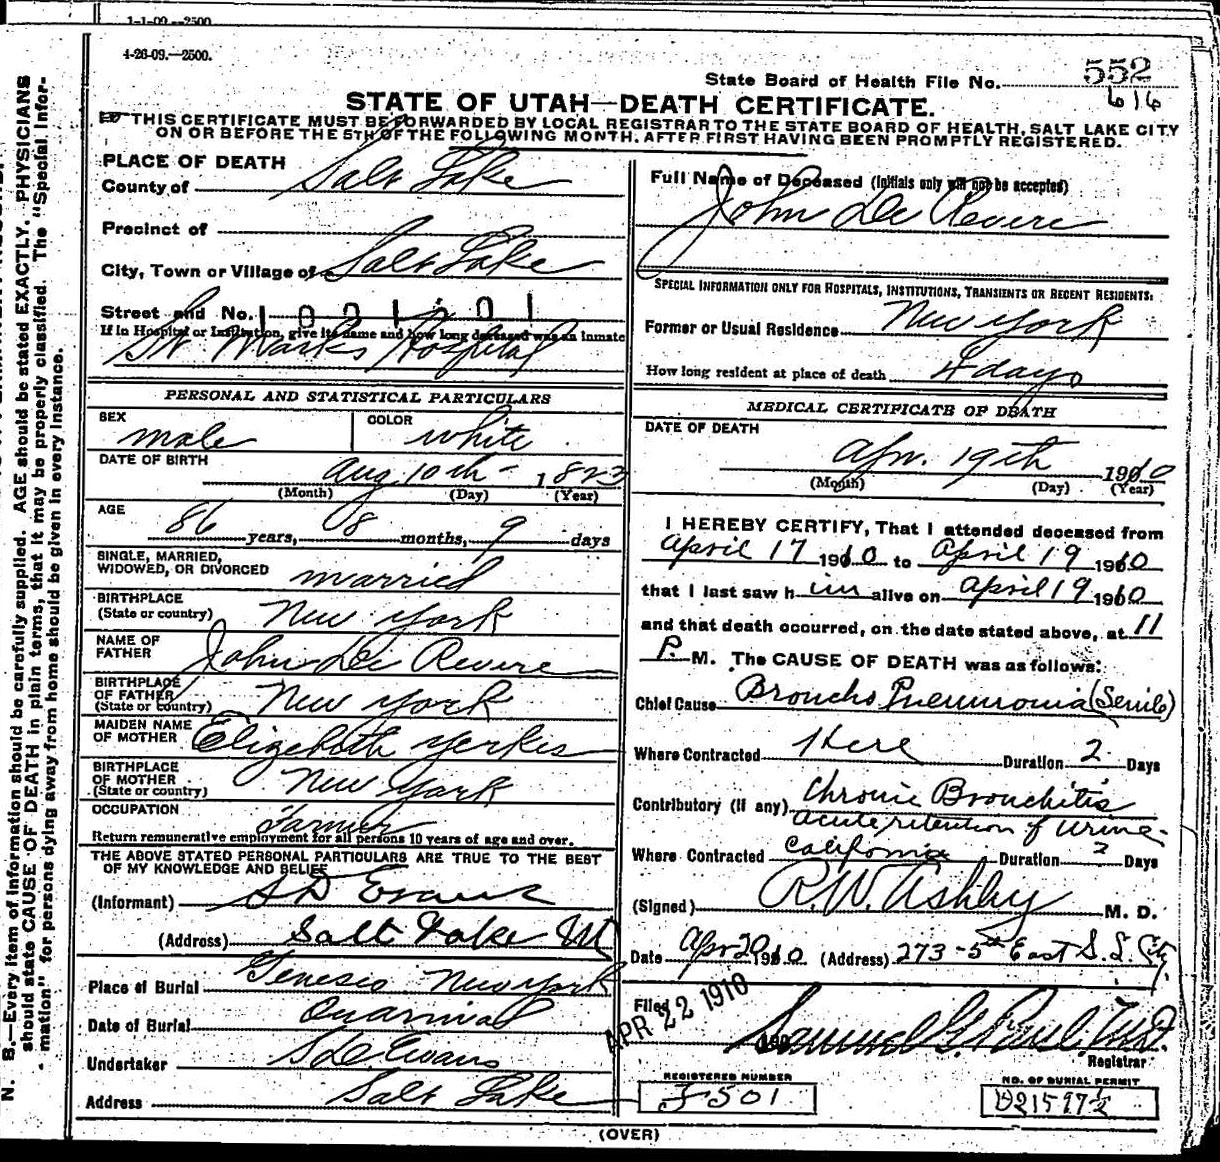 1-1-09—2500
4-26-09.—2500.
State Board of Health File No. 552
616
STATE OF UTAH—DEATH CERTIFICATE.
THIS CERTIFICATE MUST BE FORWARDED BY LOCAL REGISTRAR TO THE STATE BOARD OF HEALTH, SALT LAKE CITY
ON OR BEFORE THE 5TH OF THE FOLLOWING MONTH, AFTER FIRST HAVING BEEN PROMPTLY REGISTERED.
N. B.—Every item of information should be carefully supplied. AGE should be stated EXACTLY. PHYSICIANS
should state CAUSE OF DEATH in plain terms, that it may be properly classified. The "Special Infor-
mation" for persons dying away from home should be given in every instance.
PLACE OF DEATH
County of Salt Lake
Precinct of
City, Town or Village of Salt Lake
Street and No. 1001501
If in Hospital or Institution, give its name and how long deceased was an inmate
St. Marks Hospital
PERSONAL AND STATISTICAL PARTICULARS
SEX male COLOR white
DATE OF BIRTH Aug 10th - 1823
(Month) (Day) (Year)
AGE 86 years, 08 months, 9 days
SINGLE, MARRIED,
WIDOWED, OR DIVORCED married
BIRTHPLACE
(State or country) New York
NAME OF
FATHER John De Revere
BIRTHPLACE
OF FATHER
(State or country) New York
MAIDEN NAME
OF MOTHER Elizabeth Yerkes
BIRTHPLACE
OF MOTHER
(State or country) New York
OCCUPATION Farmer
Return remunerative employment for all persons 10 years of age and over.
THE ABOVE STATED PERSONAL PARTICULARS ARE TRUE TO THE BEST
OF MY KNOWLEDGE AND BELIEF
(Informant) S D Evans
(Address) Salt Lake Ut
Place of Burial Geneseo New York
Date of Burial
Undertaker S D. Evans
Address Salt Lake
Full Name of Deceased (Initials only will not be accepted)
John De Revere
SPECIAL INFORMATION ONLY FOR HOSPITALS, INSTITUTIONS, TRANSIENTS OR RECENT RESIDENTS:
Former or Usual Residence New York
How long resident at place of death 4 days
MEDICAL CERTIFICATE OF DEATH
DATE OF DEATH
Apr. 19th 1910
(Month) (Day) (Year)
I HEREBY CERTIFY, That I attended deceased from
April 17 1910 to April 19 1910
that I last saw him alive on April 19 1910
and that death occurred, on the date stated above, at 11
P. M. The CAUSE OF DEATH was as follows:
Chief Cause Broncho Pneumonia (Senile)
Where Contracted Here Duration 2 Days
Contributory (if any) Chronic Bronchitis
acute retention of urine
Where Contracted California Duration ? Days
(Signed) R. W. Ashley M. D.
Date Apr 20 1910 (Address) 273 - 5th East S. L. City
Filed APR 22 1910
Samuel G. Paul, M.D.
Registrar
REGISTERED NUMBER
J501
NO. OF BURIAL PERMIT
D21597½
(OVER)